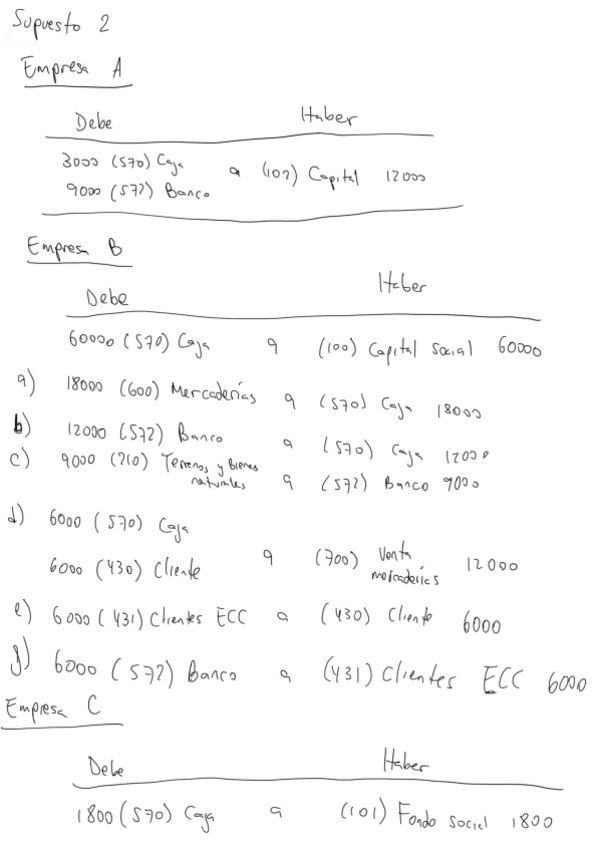 Supuesto 2
Empresa A
Debe Haber
3000 (570) Caja a (102) Capital 12000
9000 (572) Banco
Empresa B
Debe Haber
60000 (570) Caja a (100) Capital Social 60000
a) 18000 (600) Mercaderías a (570) Caja 18000
b) 12000 (572) Banco a (570) Caja 12000
c) 9000 (210) Terrenos y bienes naturales a (572) Banco 9000
d) 6000 (570) Caja
6000 (430) Cliente a (700) Venta mercaderías 12000
e) 6000 (431) Clientes ECC a (430) Cliente 6000
g) 6000 (572) Banco a (431) Clientes ECC 6000
Empresa C
Debe Haber
1800 (570) Caja a (101) Fondo social 1800